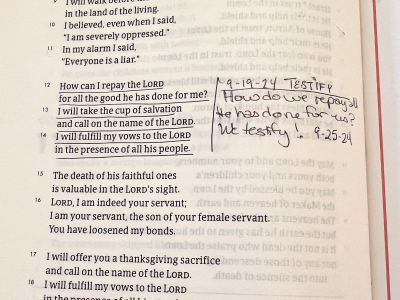 in the land of the living.
10 I believed, even when I said,
"I am severely oppressed."
11 In my alarm I said,
"Everyone is a liar."
12 How can I repay the LORD
for all the good he has done for me?
13 I will take the cup of salvation
and call on the name of the LORD.
14 I will fulfill my vows to the LORD
in the presence of all his people.
9-19-24 TESTIFY
How do we repay all
He has done for us?
We testify! 9-25-24
15 The death of his faithful ones
is valuable in the LORD's sight.
16 LORD, I am indeed your servant;
I am your servant, the son of your female servant.
You have loosened my bonds.
17 I will offer you a thanksgiving sacrifice
and call on the name of the LORD.
18 I will fulfill my vows to the LORD
in the presence of all his people,